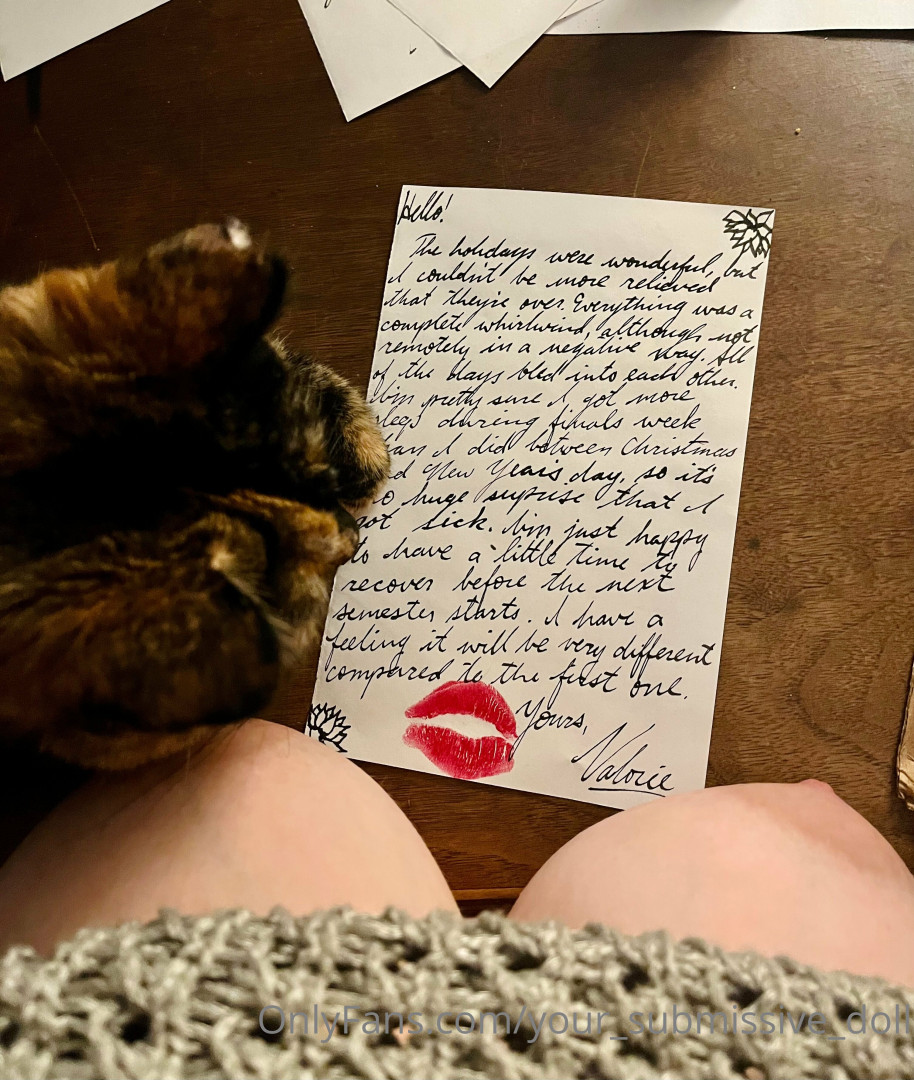 Hello!
The holidays were wonderful, but
I couldn't be more relieved
that they're over. Everything was a
complete whirlwind, although not
remotely in a negative way. All
of the days bled into each other.
I'm pretty sure I got more
sleep during finals week
than I did between Christmas
and New Year's day, so it's
no huge suprise that I
got sick. I'm just happy
to have a little time to
recover before the next
semester starts. I have a
feeling it will be very different
compared to the first one.
Yours,
Valorie
OnlyFans.com/your_submissive_doll